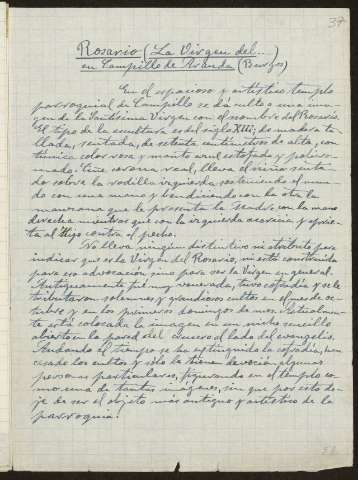 37
Rosario (La Virgen del....)
en Campillo de Aranda (Burgos)
En el espacioso y artístico templo
parroquial de Campillo se dá culto a una ima-
gen de la Santísima Virgen con el nombre del Rosario.
El tipo de la escultura es del siglo XIII; de madera ta-
llada, sentada, de setenta centímetros de alta, con
túnica color rosa y manto azul estofado y policro-
mado. Ciñe corona real, lleva el niño senta-
do sobre la rodilla izquierda, sosteniendo el mun-
do con una mano y bendiciendo con la otra la
manzana que le presenta la Madre con la mano
derecha mientras que con la izquierda acaricia y aprie-
ta al Hijo contra el pecho.
No lleva ningún distintivo ni atributo para
indicar que es la Virgen del Rosario, ni está construida
para esa advocación sino para ser la Virgen en general.
Antiguamente fué muy venerada, tuvo cofradía y se le
tributaron solemnes y grandiosos cultos en el mes de oc-
tubre y en los primeros domingos de mes. Actualmen-
te está colocada la imagen en un nicho sencillo
abierto en la pared del crucero al lado del evangelio.
Andando el tiempo se ha extinguido la cofradía, han
cesado los cultos y sólo la tienen devoción algunas
personas particulares, figurando en el templo co-
mo una de tantas imágenes, sin que por esto de-
je de ser el objeto más antiguo y artístico de la
parroquia.